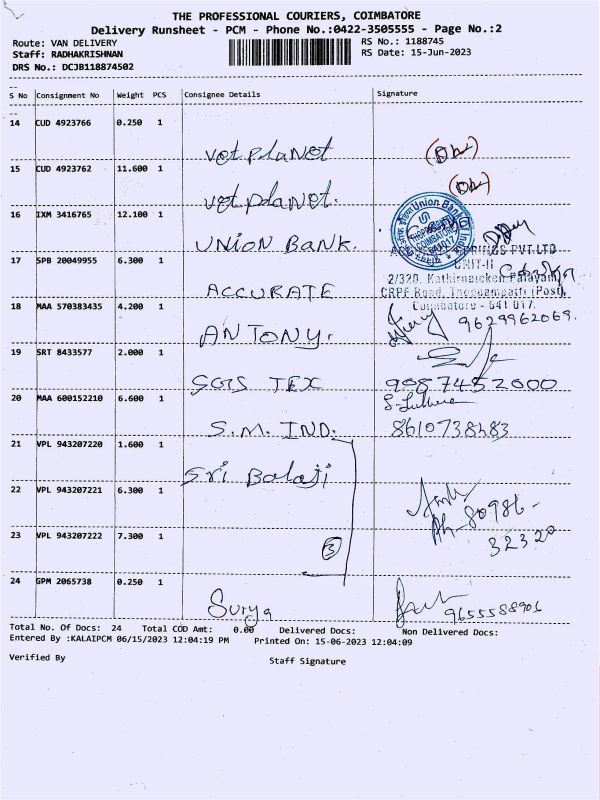 THE PROFESSIONAL COURIERS, COIMBATORE
Delivery Runsheet - PCM - Phone No.:0422-3505555 - Page No.:2
Route: VAN DELIVERY
RS No.: 1188745
Staff: RADHAKRISHNAN
RS Date: 15-Jun-2023
DRS No.: DCJB118874502
S No Consignment No Weight PCS Consignee Details Signature
14 CUD 4923766 0.250 1
vet planet
15 CUD 4923762 11.600 1
vet planet.
16 IXM 3416765 12.100 1
UNION BANK.
17 SPB 20049955 6.300 1
UNIT-II
2/320, Kathirnaicken Palayam,
ACCURATE
CRPF Road, Thoppampatti (Post),
18 MAA 570383435 4.200 1
Coimbatore - 641 017.
9629962069.
ANTONY.
19 SRT 8433577 2.000 1
SGIS TEX 9087452000
20 MAA 600152210 6.600 1
S.M. IND. 8610738483
21 VPL 943207220 1.600 1
Sri Balaji
22 VPL 943207221 6.300 1
Ph-80986-
32320
23 VPL 943207222 7.300 1
3
24 GPM 2065738 0.250 1
Surya 9655588906
Total No. Of Docs: 24 Total COD Amt: 0.00 Delivered Docs: Non Delivered Docs:
Entered By :KALAIPCM 06/15/2023 12:04:19 PM Printed On: 15-06-2023 12:04:09
Verified By Staff Signature